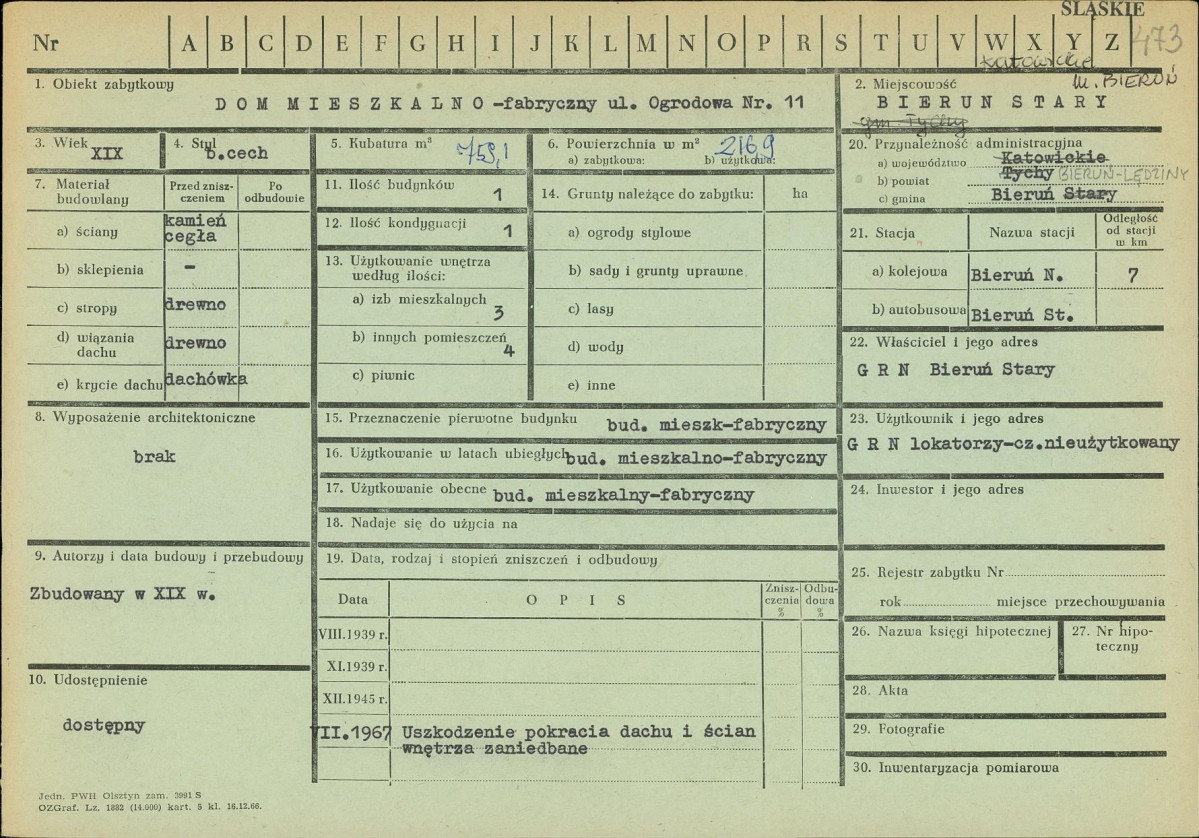 ŚLĄSKIE
Nr A B C D E F G H I J K L M N O P R S T U V W X Y Z 473
katowickie
m. BIERUŃ
1. Obiekt zabytkowy
DOM MIESZKALNO -fabryczny ul. Ogrodowa Nr. 11
2. Miejscowość
BIERUN STARY
gm Tychy
3. Wiek
XIX
4. Styl
b.cech
5. Kubatura m³
759,1
6. Powierzchnia w m²
216,9
a) zabytkowa: b) użytkowa:
20. Przynależność administracyjna
a) województwo Katowickie
b) powiat Tychy BIERUŃ-LĘDZINY
c) gmina Bieruń Stary
7. Materiał budowlany
Przed zniszczeniem
Po odbudowie
a) ściany kamień
cegła
b) sklepienia -
c) stropy drewno
d) wiązania dachu drewno
e) krycie dachu dachówka
11. Ilość budynków 1
12. Ilość kondygnacji 1
13. Użytkowanie wnętrza
według ilości:
a) izb mieszkalnych 3
b) innych pomieszczeń 4
c) piwnic
14. Grunty należące do zabytku: ha
a) ogrody stylowe
b) sady i grunty uprawne
c) lasy
d) wody
e) inne
21. Stacja
Nazwa stacji
Odległość
od stacji
w km
a) kolejowa Bieruń N. 7
b) autobusowa Bieruń St.
22. Właściciel i jego adres
G R N Bieruń Stary
8. Wyposażenie architektoniczne
brak
15. Przeznaczenie pierwotne budynku bud. mieszk-fabryczny
16. Użytkowanie w latach ubiegłych bud. mieszkalno-fabryczny
17. Użytkowanie obecne bud. mieszkalny-fabryczny
18. Nadaje się do użycia na
23. Użytkownik i jego adres
G R N lokatorzy-cz.nieużytkowany
24. Inwestor i jego adres
9. Autorzy i data budowy i przebudowy
Zbudowany w XIX w.
19. Data, rodzaj i stopień zniszczeń i odbudowy
Data
O P I S
Zniszczenia %
Odbudowa %
VIII.1939 r.
XI.1939 r.
XII.1945 r.
VII.1967 Uszkodzenie pokracia dachu i ścian
wnętrza zaniedbane
25. Rejestr zabytku Nr
rok miejsce przechowywania
26. Nazwa księgi hipotecznej
27. Nr hipoteczny
28. Akta
29. Fotografie
30. Inwentaryzacja pomiarowa
10. Udostępnienie
dostępny
Jedn. PWH Olsztyn zam. 3991 S
OZGraf. Lz. 1882 (14.000) kart. 5 kl. 16.12.66.